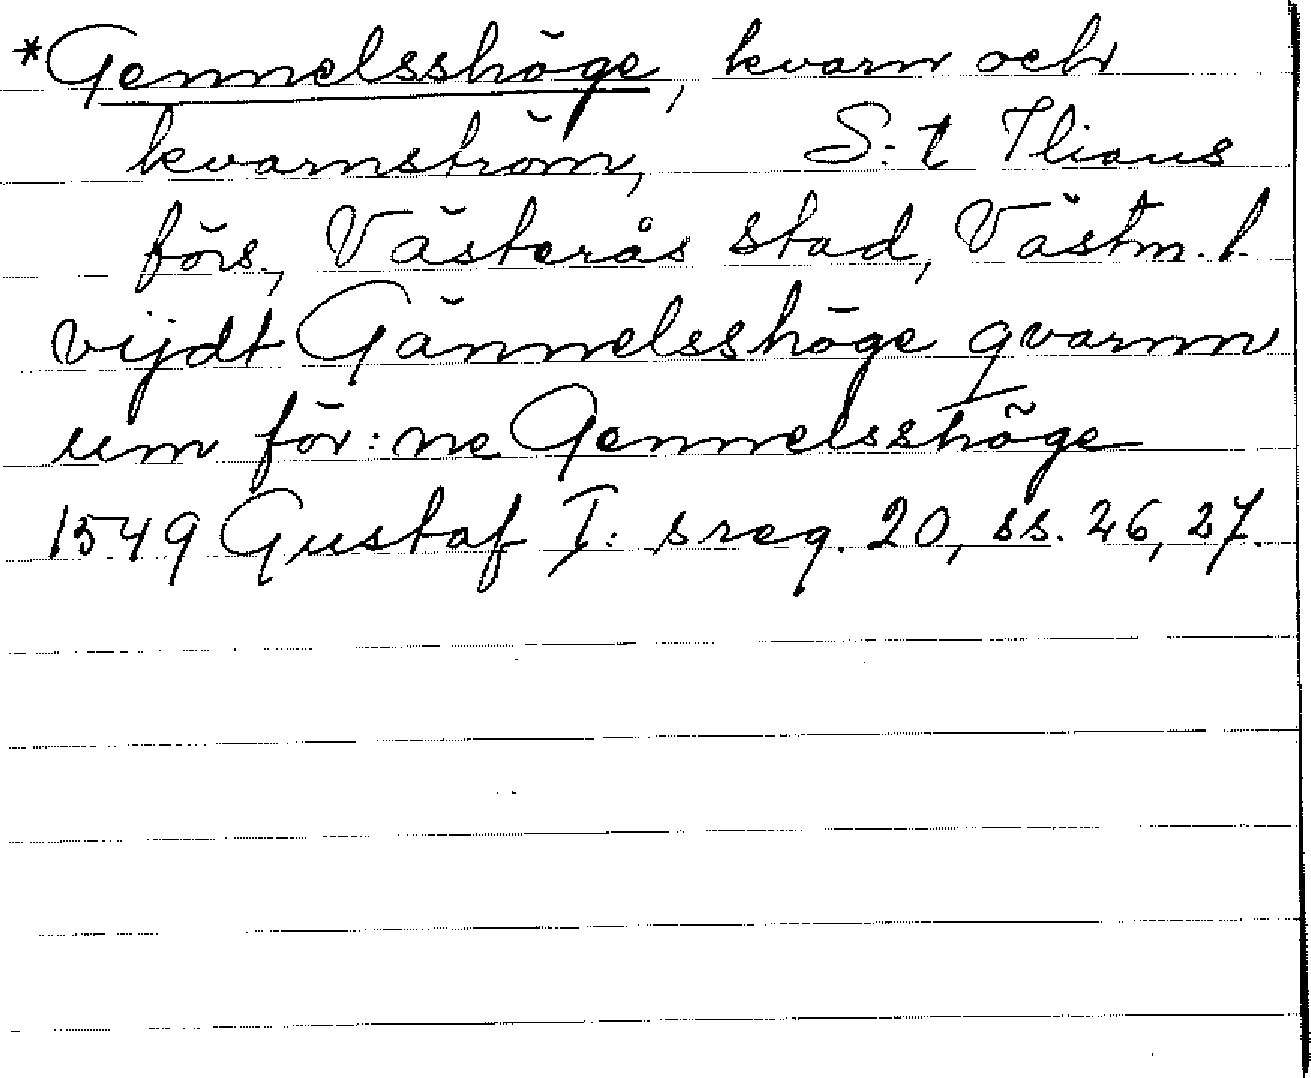 *Gennelsshöge, kvarn och
kvarnström, S:t Ilians
förs., Västerås stad, Västm. l.
vijdt Gännelsshöge qvarnn
um för:ne Gennelsshöge
1549 Gustaf I:s reg. 20, ss. 26, 27.